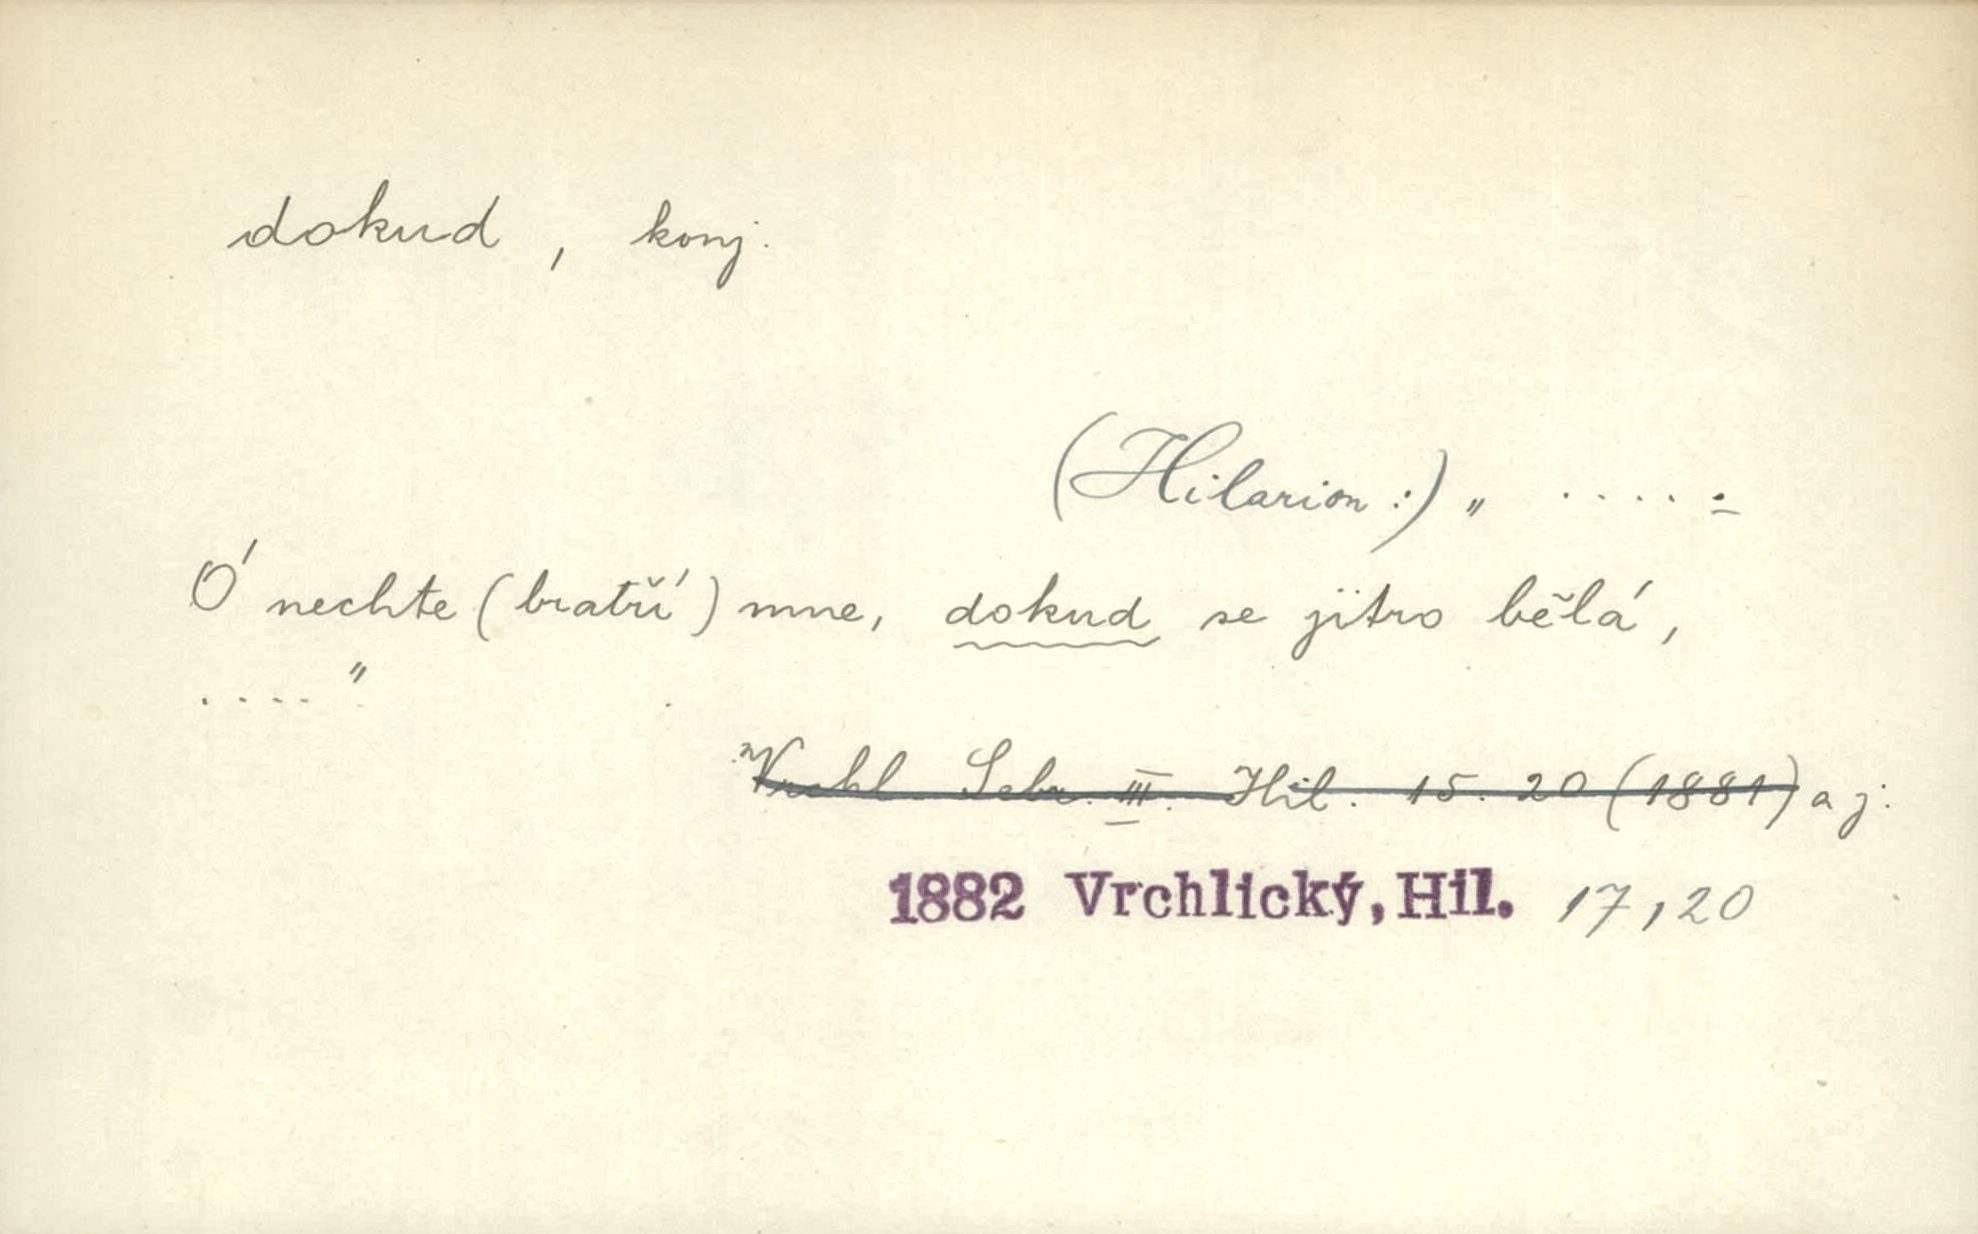 dokud , konj.
(Hilarion :) „ . . . . .
Ó nechte (bratří) mne, dokud se jitro bělá,
. . . . "
Vrchl. Sebr. III. Hil. 15. 20 (1881) a j.
1882 Vrchlický, Hil. 17,20